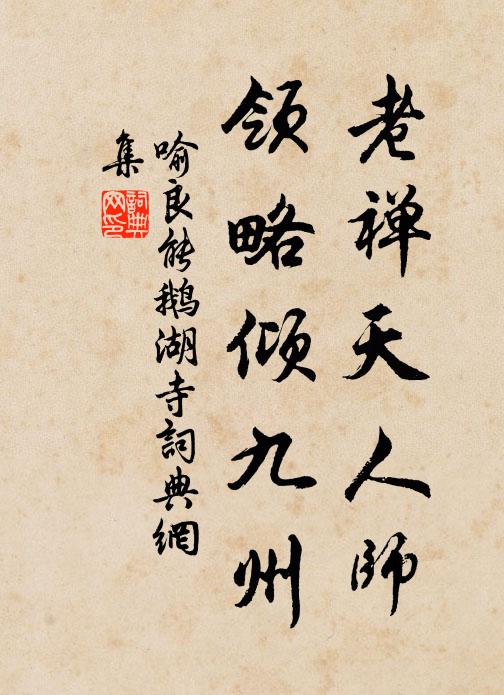 老禅天人師
領略倾九州
喻良能鵝湖寺詞典網
集
詞典
网印